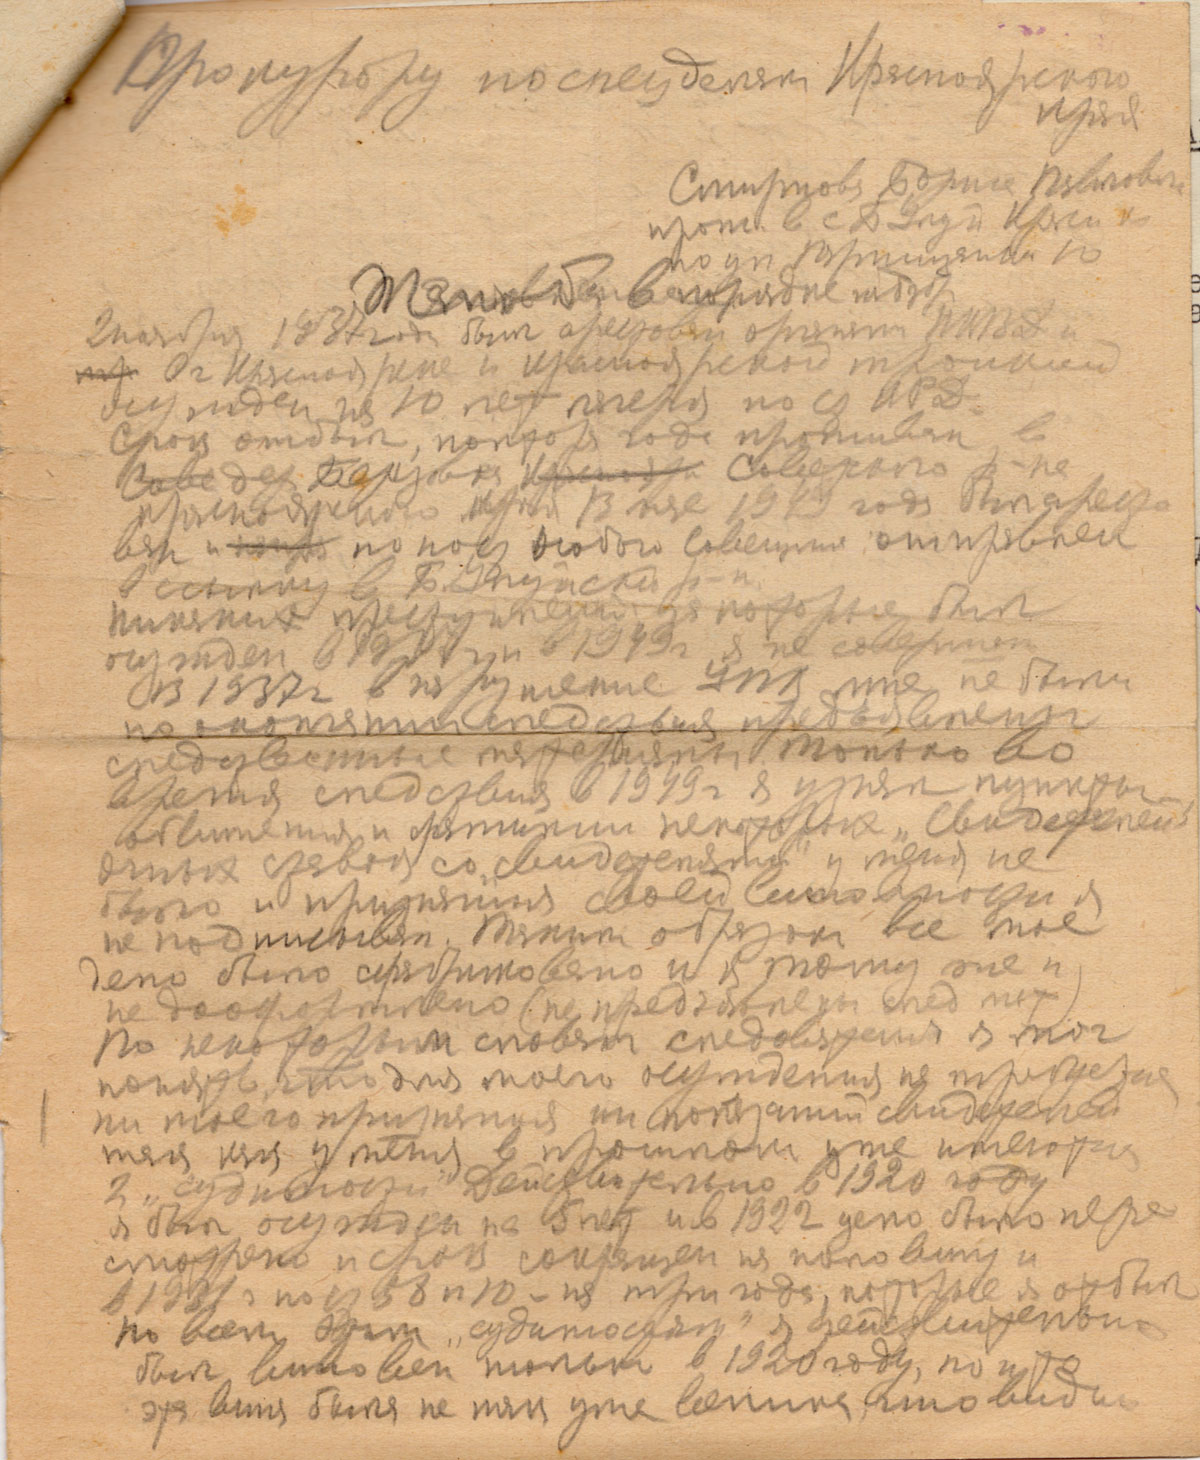 Прокурору по спецделам Красноярского
края
Смирнова Бориса Павловича
прож. в с Б Улуй Красн к
по ул Партизанская 10
Жалоба в порядке надзора
2 ноября 1937 года был арестован органами НКВД и
в г Красноярске и красноярской тройкой
осужден на 10 лет лагеря по ст КРД.
Срок отбыл, полтора года проживал в
Советск Саввского р-не
красноярского края В мае 1949 года был аресто
ван и по пост Особого Совещания отправлен
в ссылку в Б. Улуйский р-н.
Никаких преступлений за которые был
осужден в 1937 г и в 1949 г я не совершал
В 1937 г в нарушение УПК мне не были
по окончании следствия предъявлены
следственные материалы. Только во
время следствия в 1949 г я узнал пункты
обвинения и фамилии некоторых „Свидетелей"
очных ставок со „свидетелями" у меня не
было и признания своей виновности я
не подписывал. Таким образом все мое
дело было сфабриковано и к тому же и
не дооформлено (не предъявлены след мат)
По некоторым словам следователя я мог
понять, что для моего осуждения не требуется
ни моего признания ни показаний свидетелей
так как у меня в прошлом уже имелотся
2 „судимости" Действительно в 1920 году
я был осужден на 5 лет и в 1922 дело было пере
смотрено и срок сокращен на половину и
в 1931 г по ст 58 п 10 – на три года, которые я отбыл
По всем этим „судимостям" я действительно
был виновен только в 1920 году, но и то
эта вина была не так уже велика, что видно